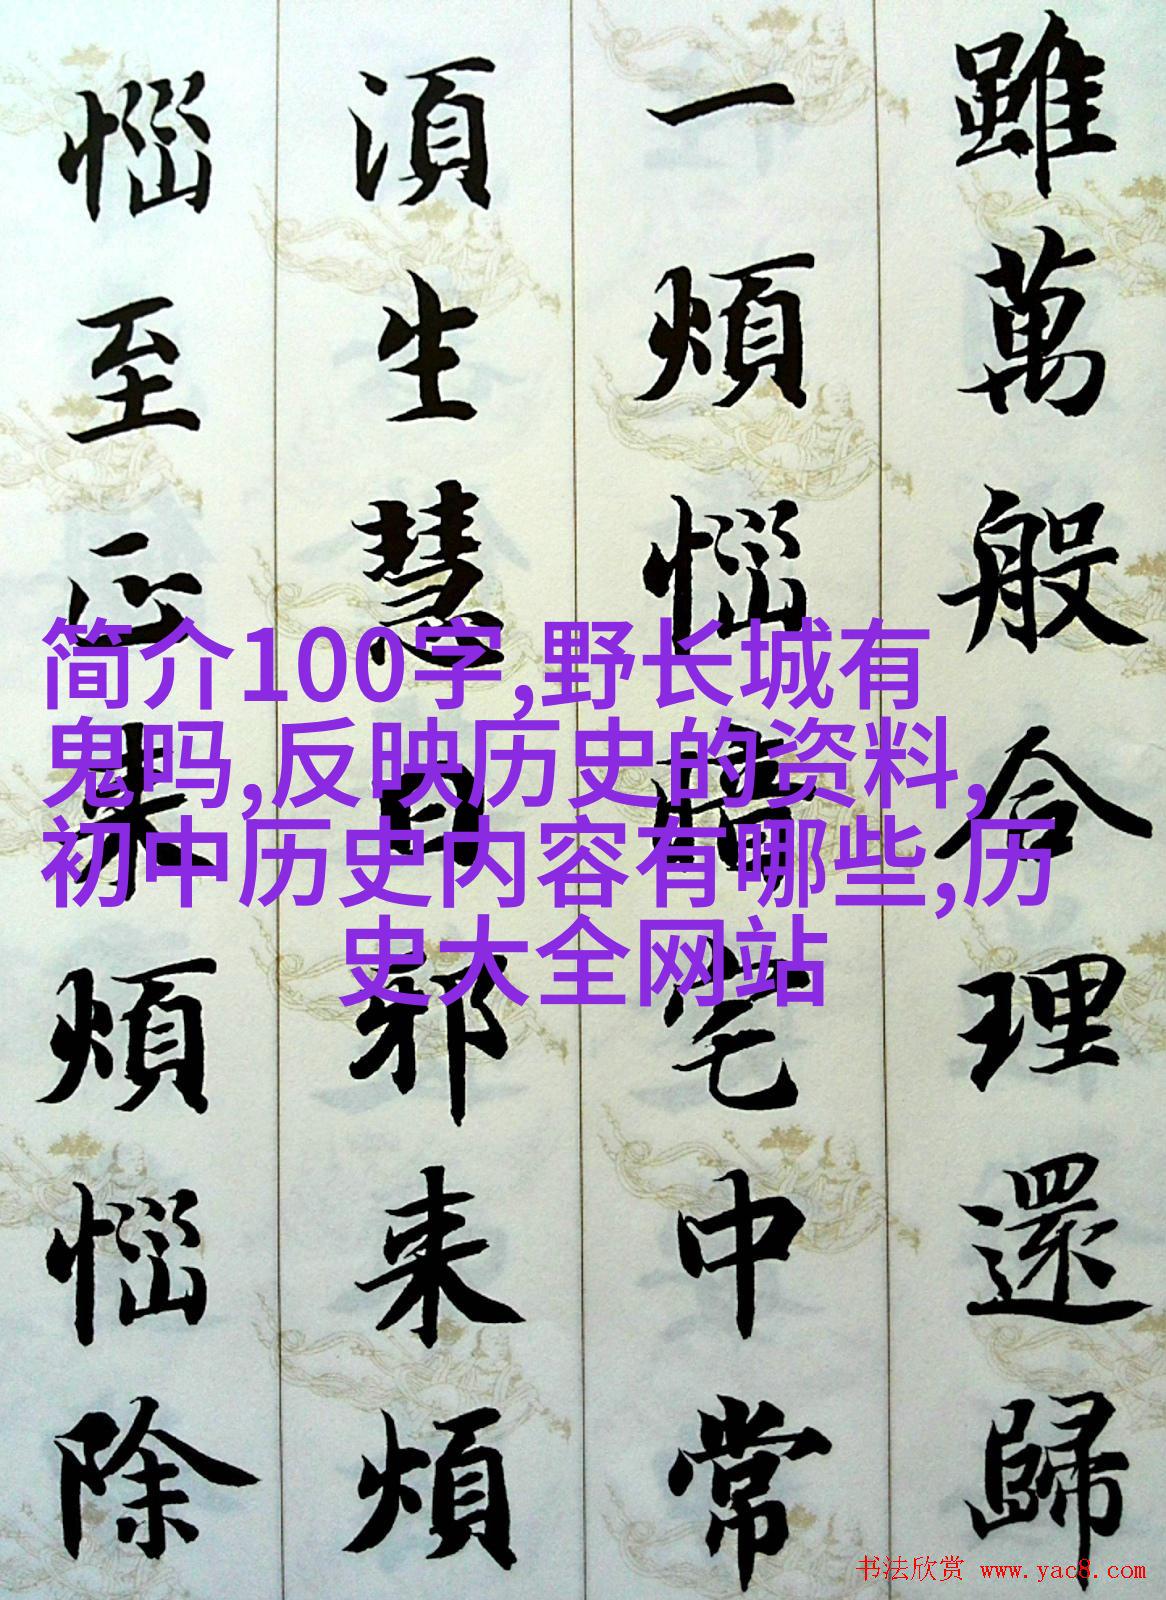 雖萬般合理還歸
一煩惱暗宅中常
湏生慧日邪来煩
惱至正来煩惱除
简介100字,野长城有
鬼吗,反映历史的资料,
初中历史内容有哪些,历
史大全网站
书法欣赏 www.yac8.com